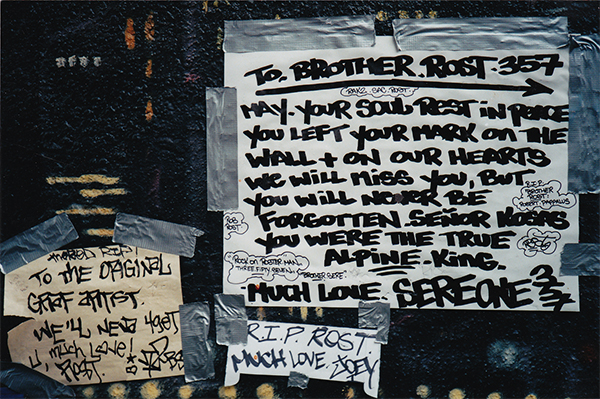 TO. BROTHER. ROST. 357
MAY. YOUR SOUL REST IN PEACE
YOU LEFT YOUR MARK ON THE
WALL + ON OUR HEARTS
WE WILL MISS YOU, BUT
YOU WILL NEVER BE
FORGOTTEN. SEÑOR ROSAS
YOU WERE THE TRUE
ALPINE - KING.
MUCH LOVE. SEREONE 357
R.I.P.
BROTHER
ROST.
ROBERT
ROB
ROST
ROCK ON ROSTER MAN.
THREE FIFTY SEVEN.
BROTHER SERE.
R.I.P!
TO THE ORIGINAL
GRAF ARTIST.
WE'LL NEVA 4GET
U, MUCH LOVE!
R.I.P. ROST
MUCH LOVE. JOEY